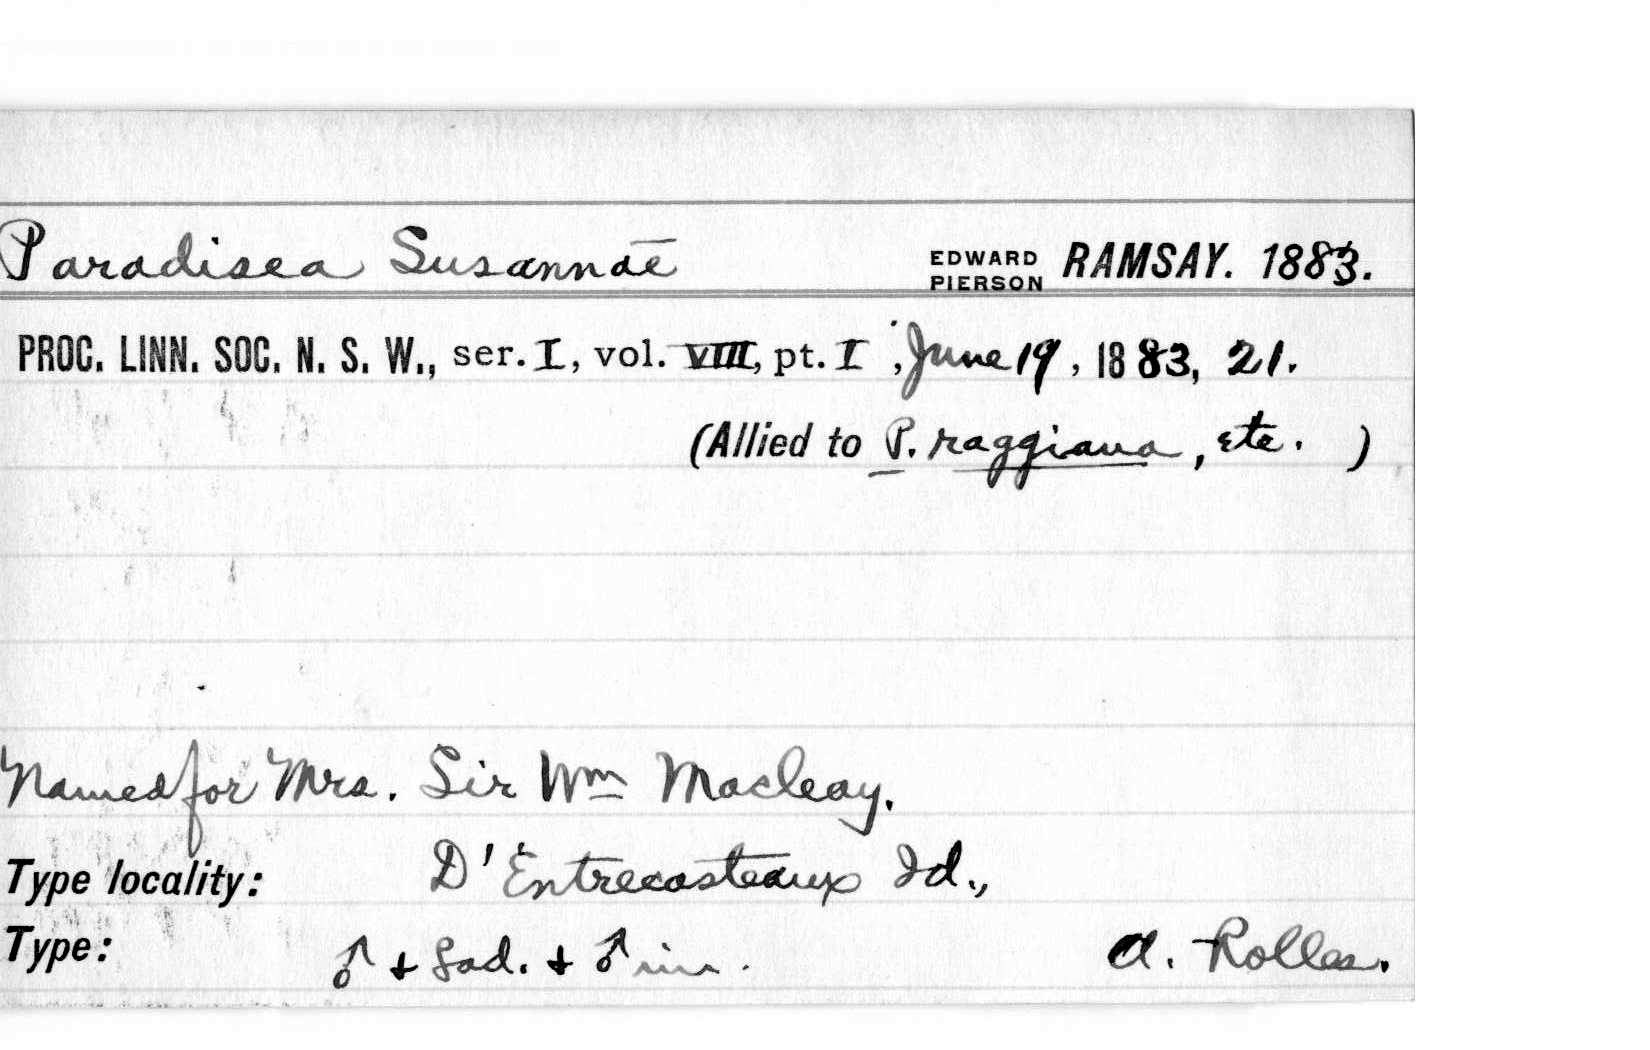 Paradisea Susannae EDWARD PIERSON RAMSAY. 1883.
PROC. LINN. SOC. N. S. W., ser. I, vol. VIII, pt. I, June 19, 1883, 21.
(Allied to P. raggiana, etc. )
Named for Mrs. Sir Wm Macleay.
Type locality: D'Entrecasteaux Id.,
Type: ♂ + ad. + ♂ im. A. Rolles.